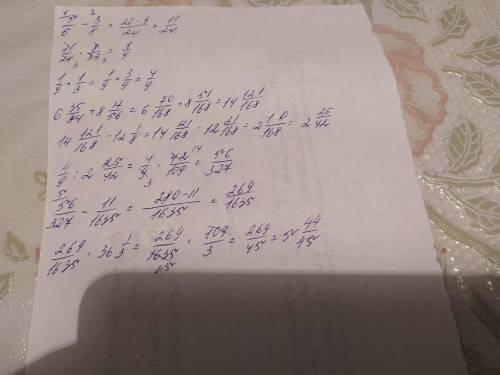 5/6 - 3/8 = 20-9/24 = 11/24
11/24 · 8/33 = 1/9
1/9 + 1/3 = 1/9 + 3/9 = 4/9
6 35/84 + 8 17/56 = 6 70/168 + 8 51/168 = 14 121/168
14 121/168 - 12 1/8 = 14 121/168 - 12 21/168 = 2 100/168 = 2 25/42
4/9 : 2 25/42 = 4/9 · 42/109 = 56/327
56/327 - 11/1635 = 280-11/1635 = 269/1635
269/1635 · 36 1/3 = 269/1635 · 109/3 = 269/45 = 5 44/45